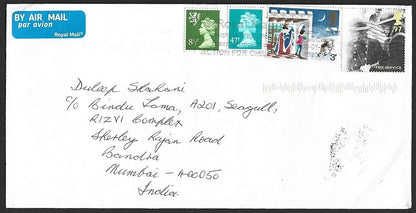 BY AIR MAIL
par avion
Royal Mail
8½
47P
3P
FIRE SERVICE
ACTION FOR CHIL
Duleep Shahani
c/o Bindu Lama, A201, Seagull,
RIZVI Complex
Sherley Rajan Road
Bandra
Mumbai - 400050
India